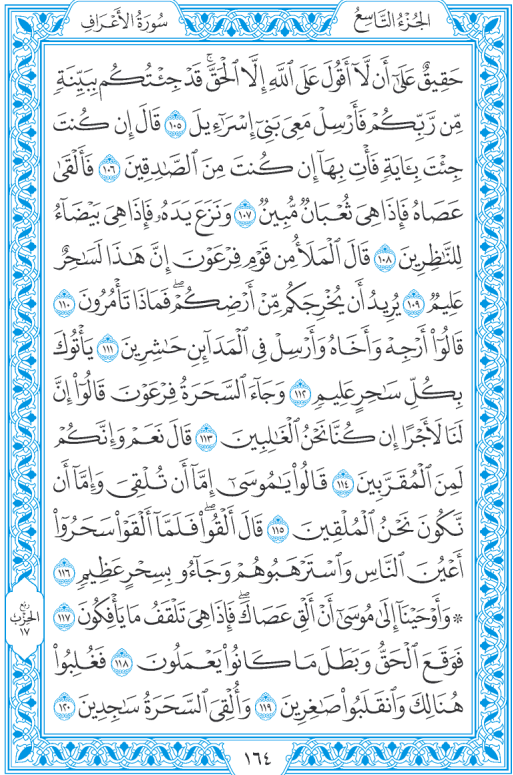 الجُزْءُ التَّاسِعُ
سُورَةُ الأَعْرَافِ
حَقِيقٌ عَلَىٰٓ أَن لَّآ أَقُولَ عَلَى ٱللَّهِ إِلَّا ٱلْحَقَّۚ قَدْ جِئْتُكُم بِبَيِّنَةٍ
مِّن رَّبِّكُمْ فَأَرْسِلْ مَعِىَ بَنِىٓ إِسْرَٰٓءِيلَ ١٠٥ قَالَ إِن كُنتَ
جِئْتَ بِـَٔايَةٍ فَأْتِ بِهَآ إِن كُنتَ مِنَ ٱلصَّـٰدِقِينَ ١٠٦ فَأَلْقَىٰ
عَصَاهُ فَإِذَا هِىَ ثُعْبَانٌ مُّبِينٌ ١٠٧ وَنَزَعَ يَدَهُۥ فَإِذَا هِىَ بَيْضَآءُ
لِلنَّـٰظِرِينَ ١٠٨ قَالَ ٱلْمَلَأُ مِن قَوْمِ فِرْعَوْنَ إِنَّ هَـٰذَا لَسَـٰحِرٌ
عَلِيمٌ ١٠٩ يُرِيدُ أَن يُخْرِجَكُم مِّنْ أَرْضِكُمْۖ فَمَاذَا تَأْمُرُونَ ١١٠
قَالُوٓا۟ أَرْجِهْ وَأَخَاهُ وَأَرْسِلْ فِى ٱلْمَدَآئِنِ حَـٰشِرِينَ ١١١ يَأْتُوكَ
بِكُلِّ سَـٰحِرٍ عَلِيمٍ ١١٢ وَجَآءَ ٱلسَّحَرَةُ فِرْعَوْنَ قَالُوٓا۟ إِنَّ
لَنَا لَأَجْرًا إِن كُنَّا نَحْنُ ٱلْغَـٰلِبِينَ ١١٣ قَالَ نَعَمْ وَإِنَّكُمْ
لَمِنَ ٱلْمُقَرَّبِينَ ١١٤ قَالُوا۟ يَـٰمُوسَىٰٓ إِمَّآ أَن تُلْقِىَ وَإِمَّآ أَن
نَّكُونَ نَحْنُ ٱلْمُلْقِينَ ١١٥ قَالَ أَلْقُوا۟ۖ فَلَمَّآ أَلْقَوْا۟ سَحَرُوٓا۟
أَعْيُنَ ٱلنَّاسِ وَٱسْتَرْهَبُوهُمْ وَجَآءُو بِسِحْرٍ عَظِيمٍ ١١٦
۞ وَأَوْحَيْنَآ إِلَىٰ مُوسَىٰٓ أَنْ أَلْقِ عَصَاكَۖ فَإِذَا هِىَ تَلْقَفُ مَا يَأْفِكُونَ ١١٧
فَوَقَعَ ٱلْحَقُّ وَبَطَلَ مَا كَانُوا۟ يَعْمَلُونَ ١١٨ فَغُلِبُوا۟
هُنَالِكَ وَٱنقَلَبُوا۟ صَـٰغِرِينَ ١١٩ وَأُلْقِىَ ٱلسَّحَرَةُ سَـٰجِدِينَ ١٢٠
ربع
الحزب
١٧
١٦٤